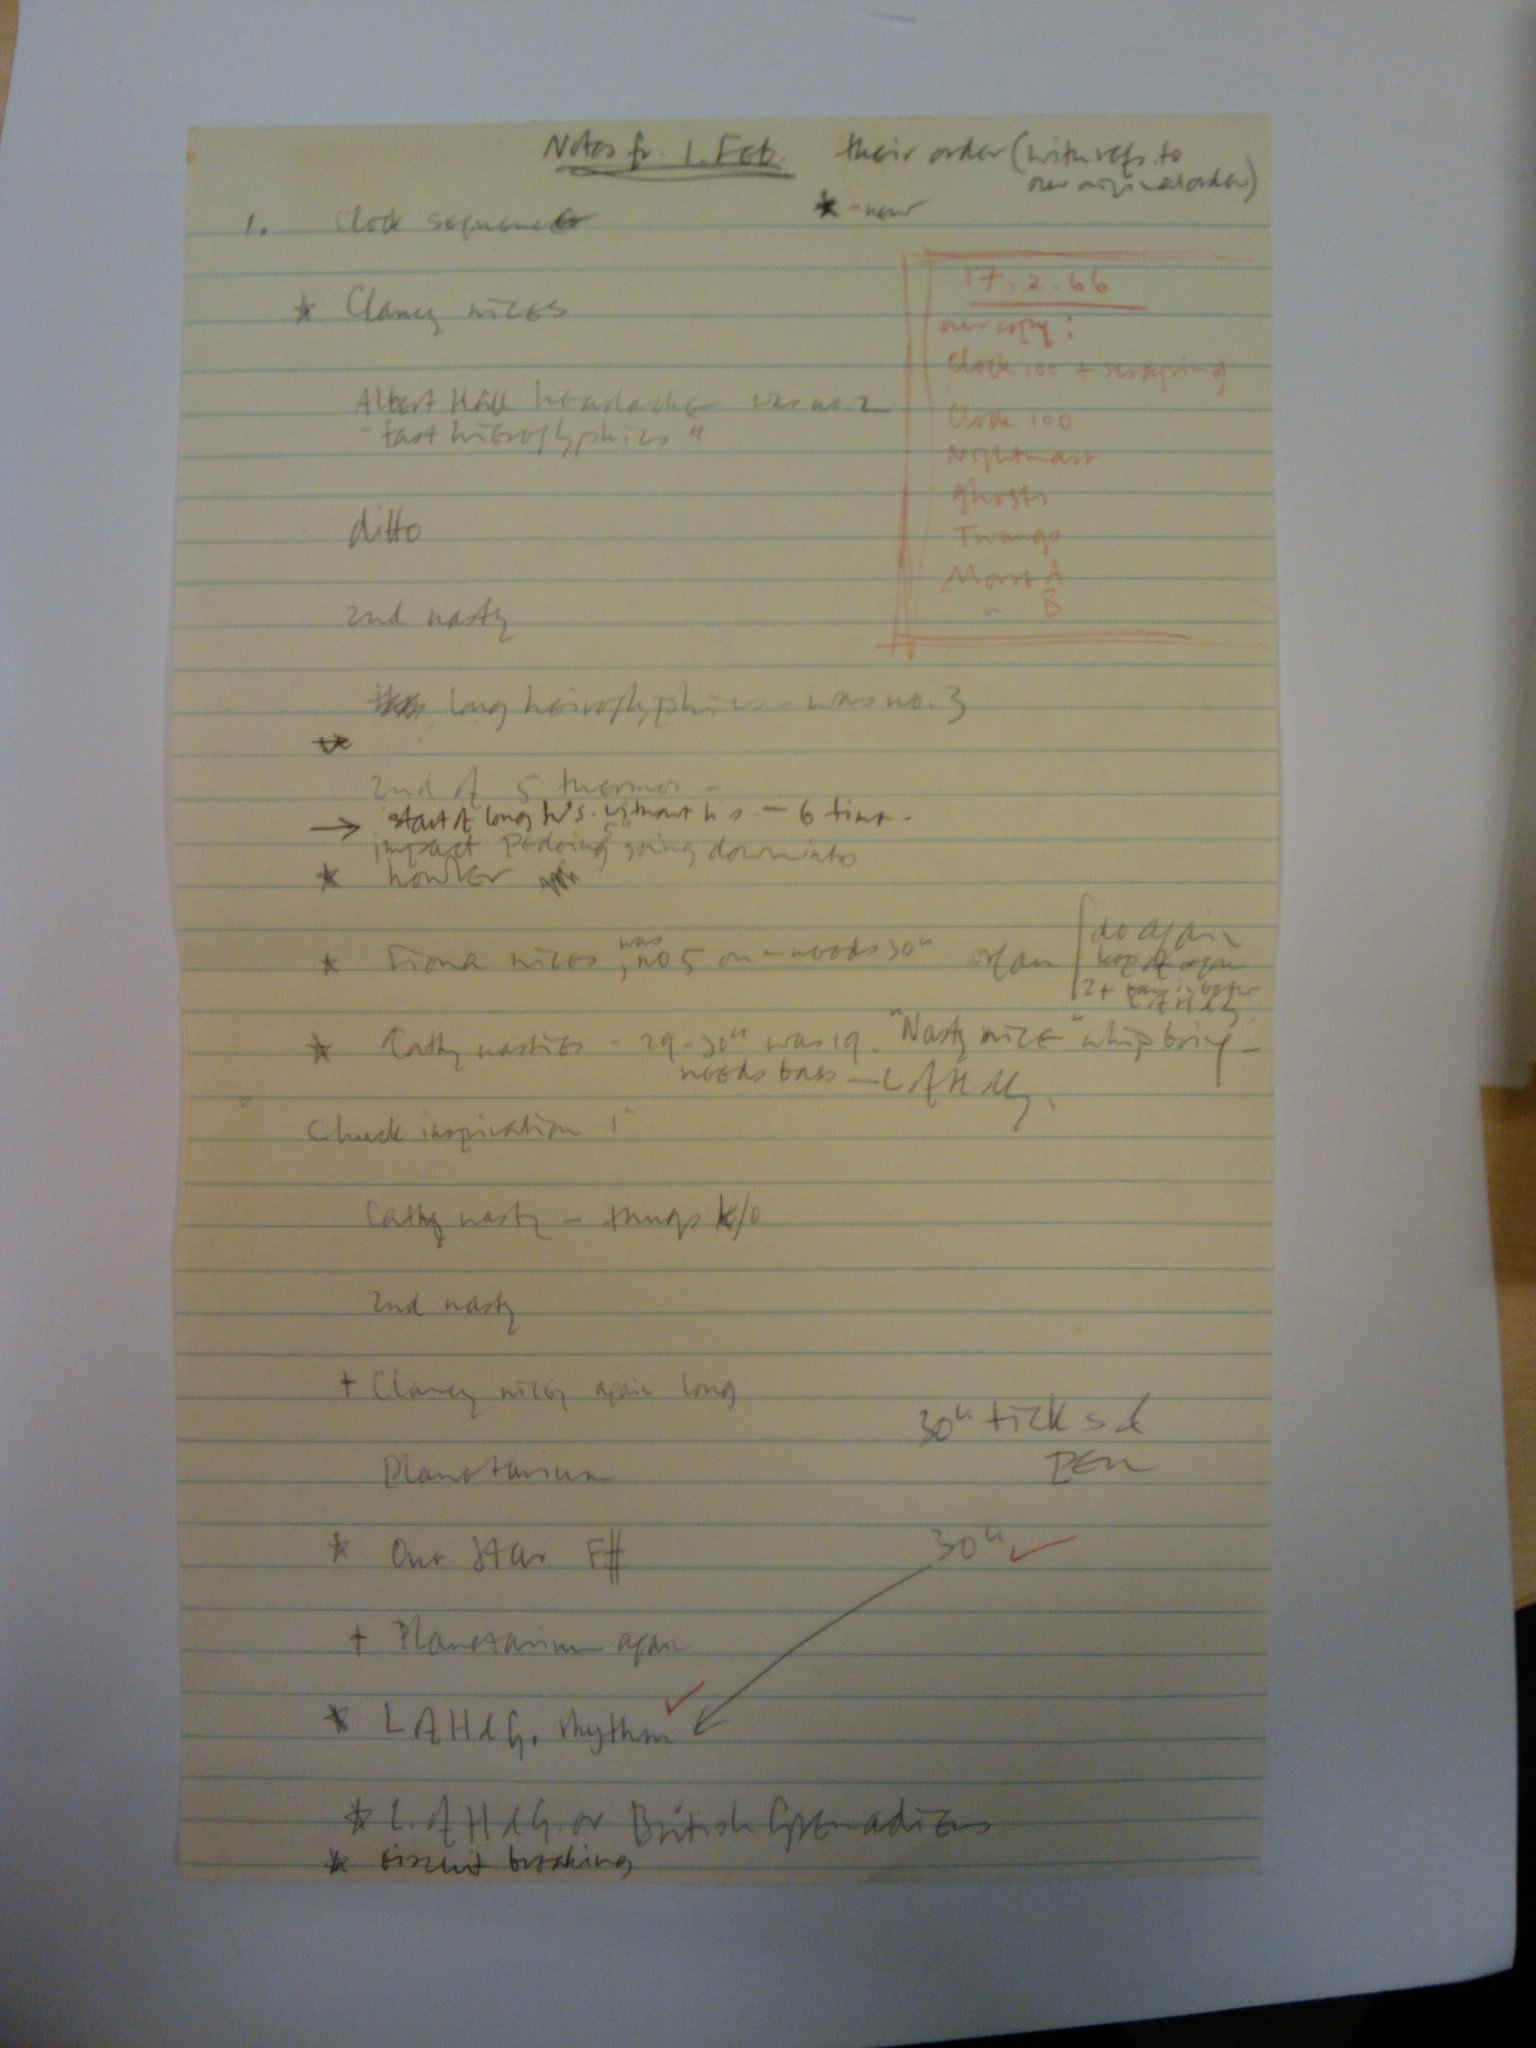 Notes fr. 1. Feb. their order (with refs. to
our original order)
* - new
1. Clock sequence
* Clancy nices
Albert Hall headache was no. 2
"fast hieroglyphics"
ditto
2nd nasty
long heiroglyphics - was no. 3
2nd of 5 thermos -
→ start of long h's. without h's. - 6 time.
impact going down into
* howler
* Fiona nices, was no 5 on - needs 30" organ
do again
* Cathy nasties - 29-30" was 19. "Nasty nice" whip
needs bass - L of H & G.
Chuck inspiration
Cathy nasty - thugs k/o
2nd nasty
+ Clancy nicey again long
Planetarium
* One star F#
+ Planetarium again
* L of H & G. rhythm
* L. of H & G. or British Grenadiers
* breaking
17.2.66
our copy:
Clock 100 + scraping
Clock 100
Nightmare
ghosts
Twangs
Morse A
" B
30" ticks &
PEN
30" ✓